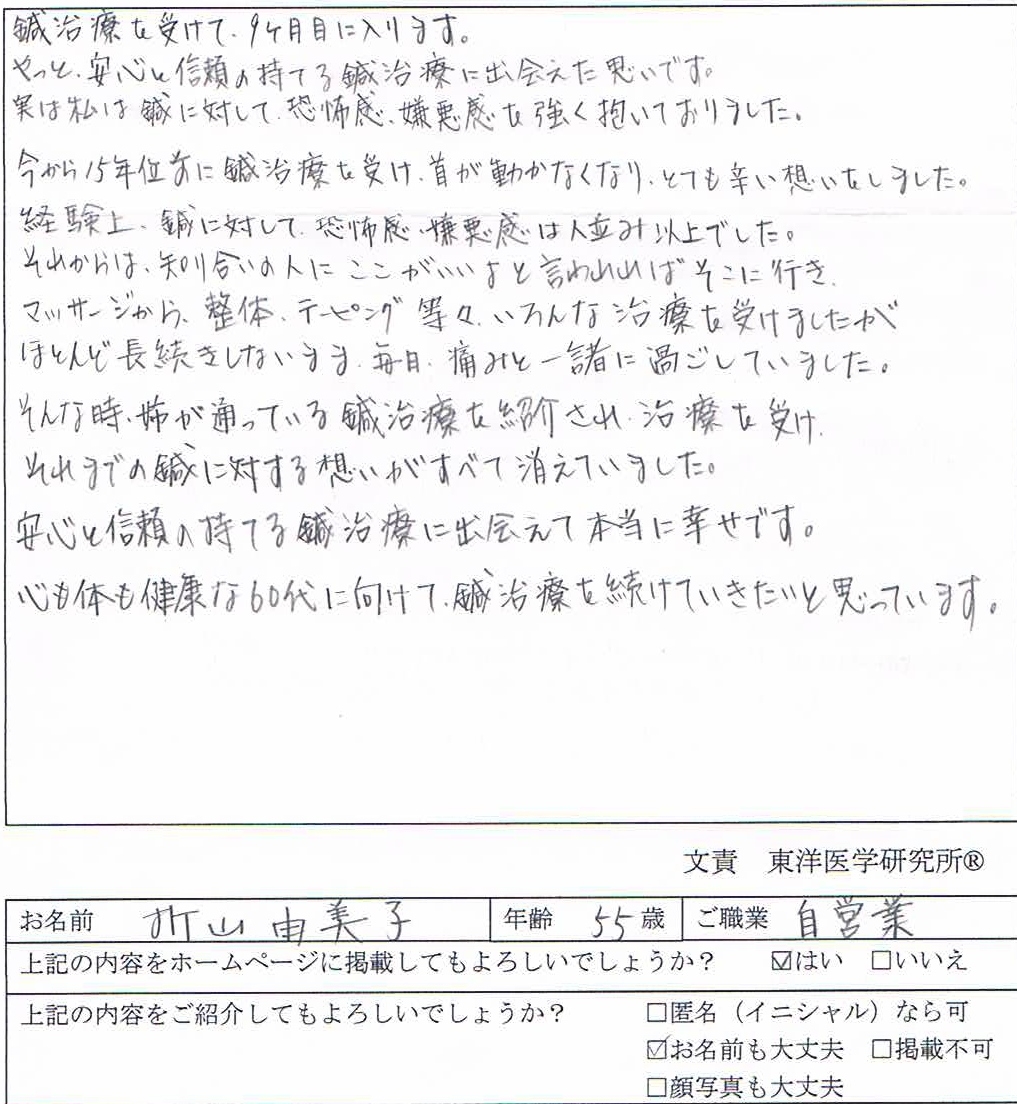 鍼治療を受けて、9ヶ月目に入ります。
やっと、安心と信頼の持てる鍼治療に出会えた思いです。
実は私は鍼に対して、恐怖感、嫌悪感を強く抱いておりました。
今から15年位前に鍼治療を受け、首が動かなくなり、とても辛い想いをしました。
経験上、鍼に対して、恐怖感、嫌悪感は人並み以上でした。
それからは、知り合いの人にここがいいよと言われればそこに行き、
マッサージから、整体、テーピング等々、いろんな治療を受けましたが
ほとんど長続きしないまま、毎日、痛みと一諸に過ごしていました。
そんな時、姉が通っている鍼治療を紹介され、治療を受け、
それまでの鍼に対する想いがすべて消えていました。
安心と信頼の持てる鍼治療に出会えて本当に幸せです。
心も体も健康な60代に向けて、鍼治療を続けていきたいと思っています。
文責 東洋医学研究所®
お名前 折山由美子 年齢 55歳 ご職業 自営業
上記の内容をホームページに掲載してもよろしいでしょうか? ☑はい □いいえ
上記の内容をご紹介してもよろしいでしょうか? □匿名(イニシャル)なら可
☑お名前も大丈夫 □掲載不可
□顔写真も大丈夫